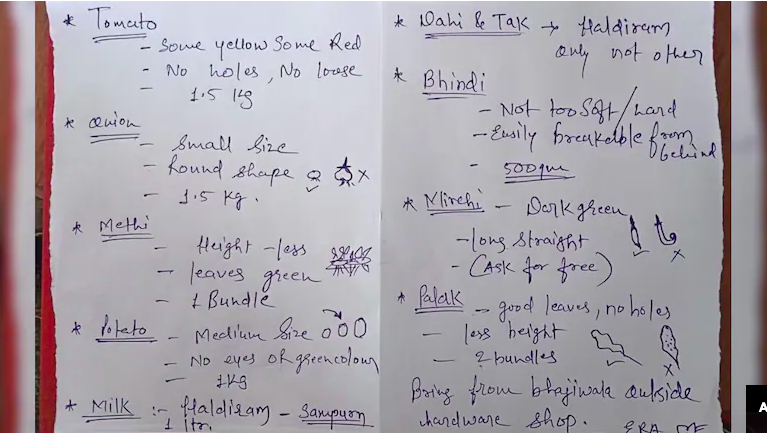 * Tomato
- Some yellow Some Red
- No holes, No loose
- 1.5 kg
* Onion
- Small Size
- Round shape
- 1.5 kg.
* Methi
- Height - less
- leaves green
- 1 Bundle
* Potato - Medium Size
- No eyes or green colour
- 1kg
* Milk :- Haldiram - Sampurn
1 ltr.
* Dahi & Tak → Haldiram
only not other
* Bhindi
- Not too Soft/hard
- Easily breakable from
behind
- 500gm
* Mirchi - Dark green
- long straight
- (Ask for free)
* Palak - good leaves, no holes
- less height
- 2 bundles
Bring from bhajiwala outside
hardware shop.
A